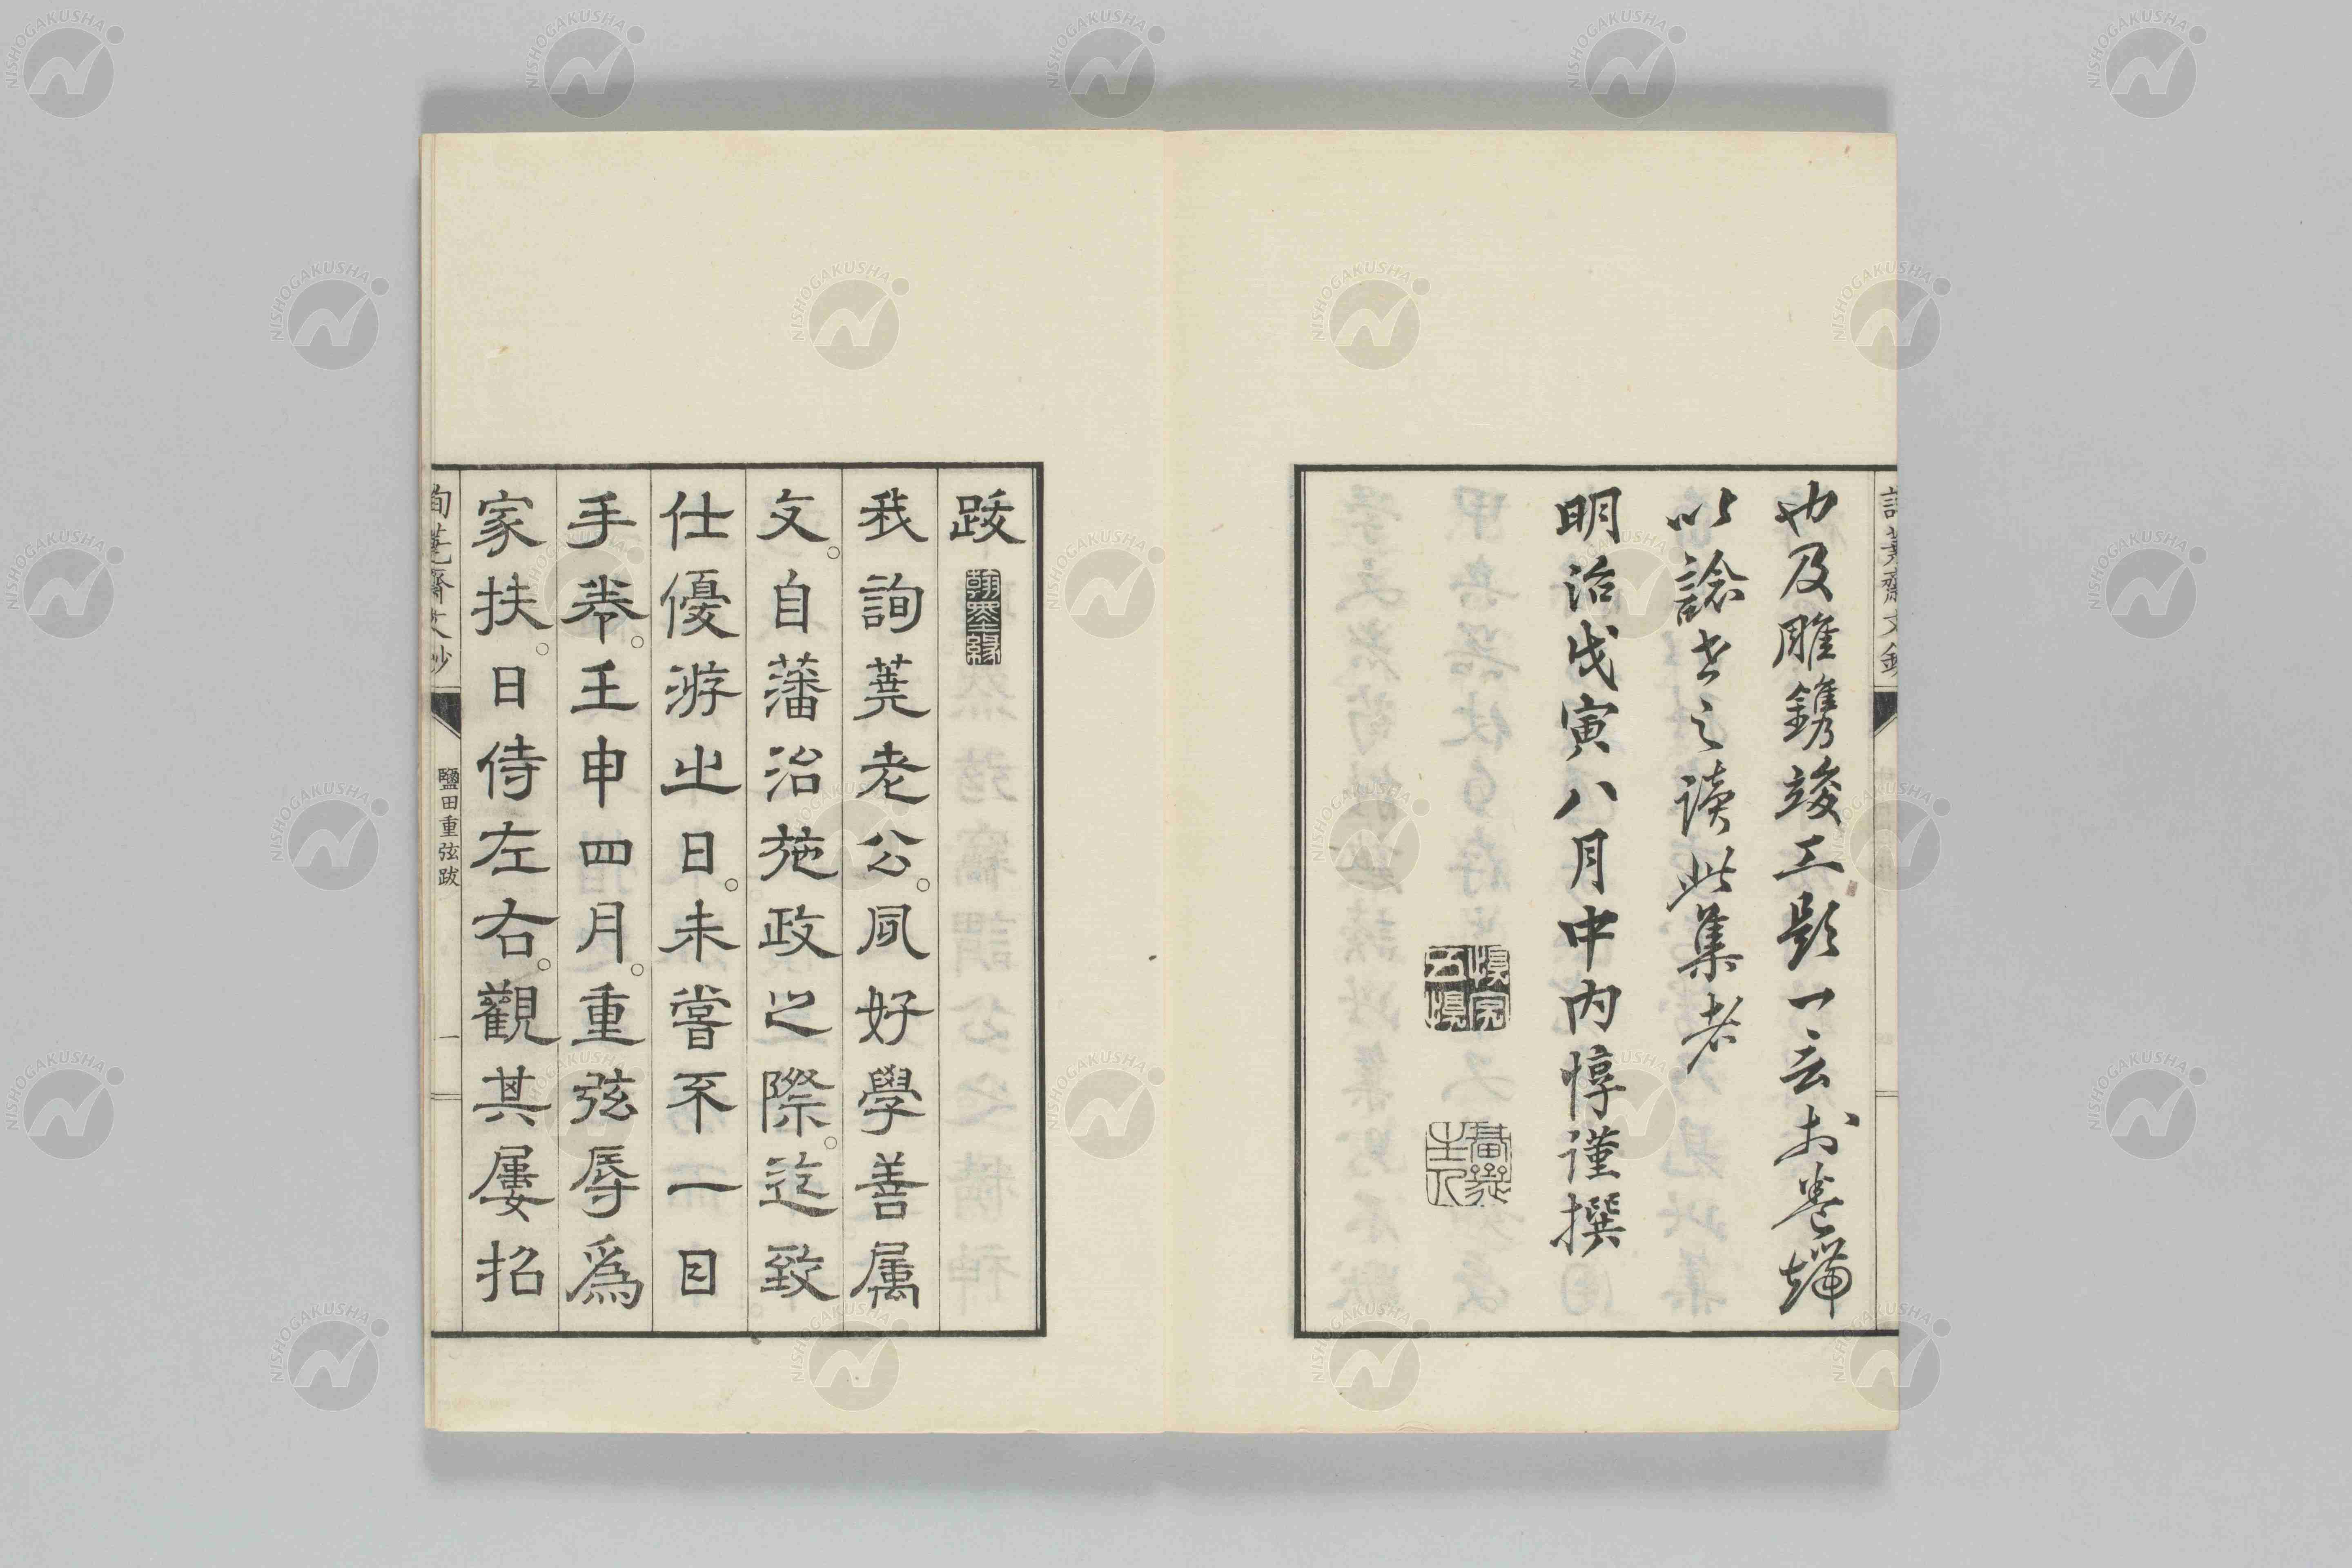 詢蕘齋文鈔
也及雕鐫竣工題一言於卷端
以諗世之讀此集者
明治戊寅八月中内惇謹撰
跋
翰墨緣
我詢蕘老公。夙好學善屬
文。自藩治施政之際。迄致
仕優游之日。未嘗不一日
手卷。壬申四月。重弦辱爲
家扶。日侍左右。觀其屢招
詢蕘齋文鈔
鹽田重弦跋
一
NISHOGAKUSHA